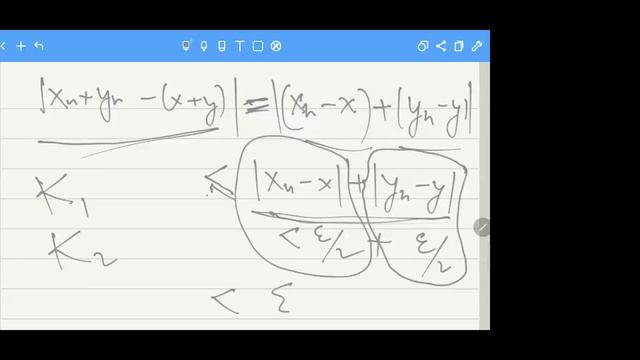 |xn + yn - (x+y)| = |(xn - x) + (yn - y)|
K1 < |xn - x| + |yn - y|
K2 < ε/2 + ε/2
< ε